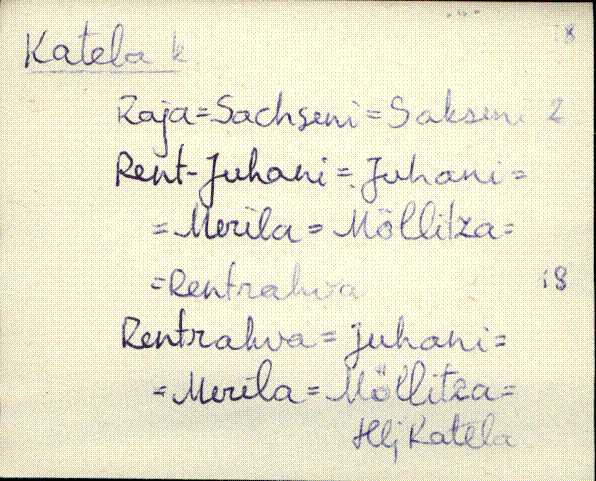 18
Katela k
Raja=Sachseni=Sakseni 2
Rent-Juhani = Juhani =
=Merila = Möllitza=
=Rentrahva 18
Rentrahva = Juhani =
=Merila = Möllitza=
Hlj Katela